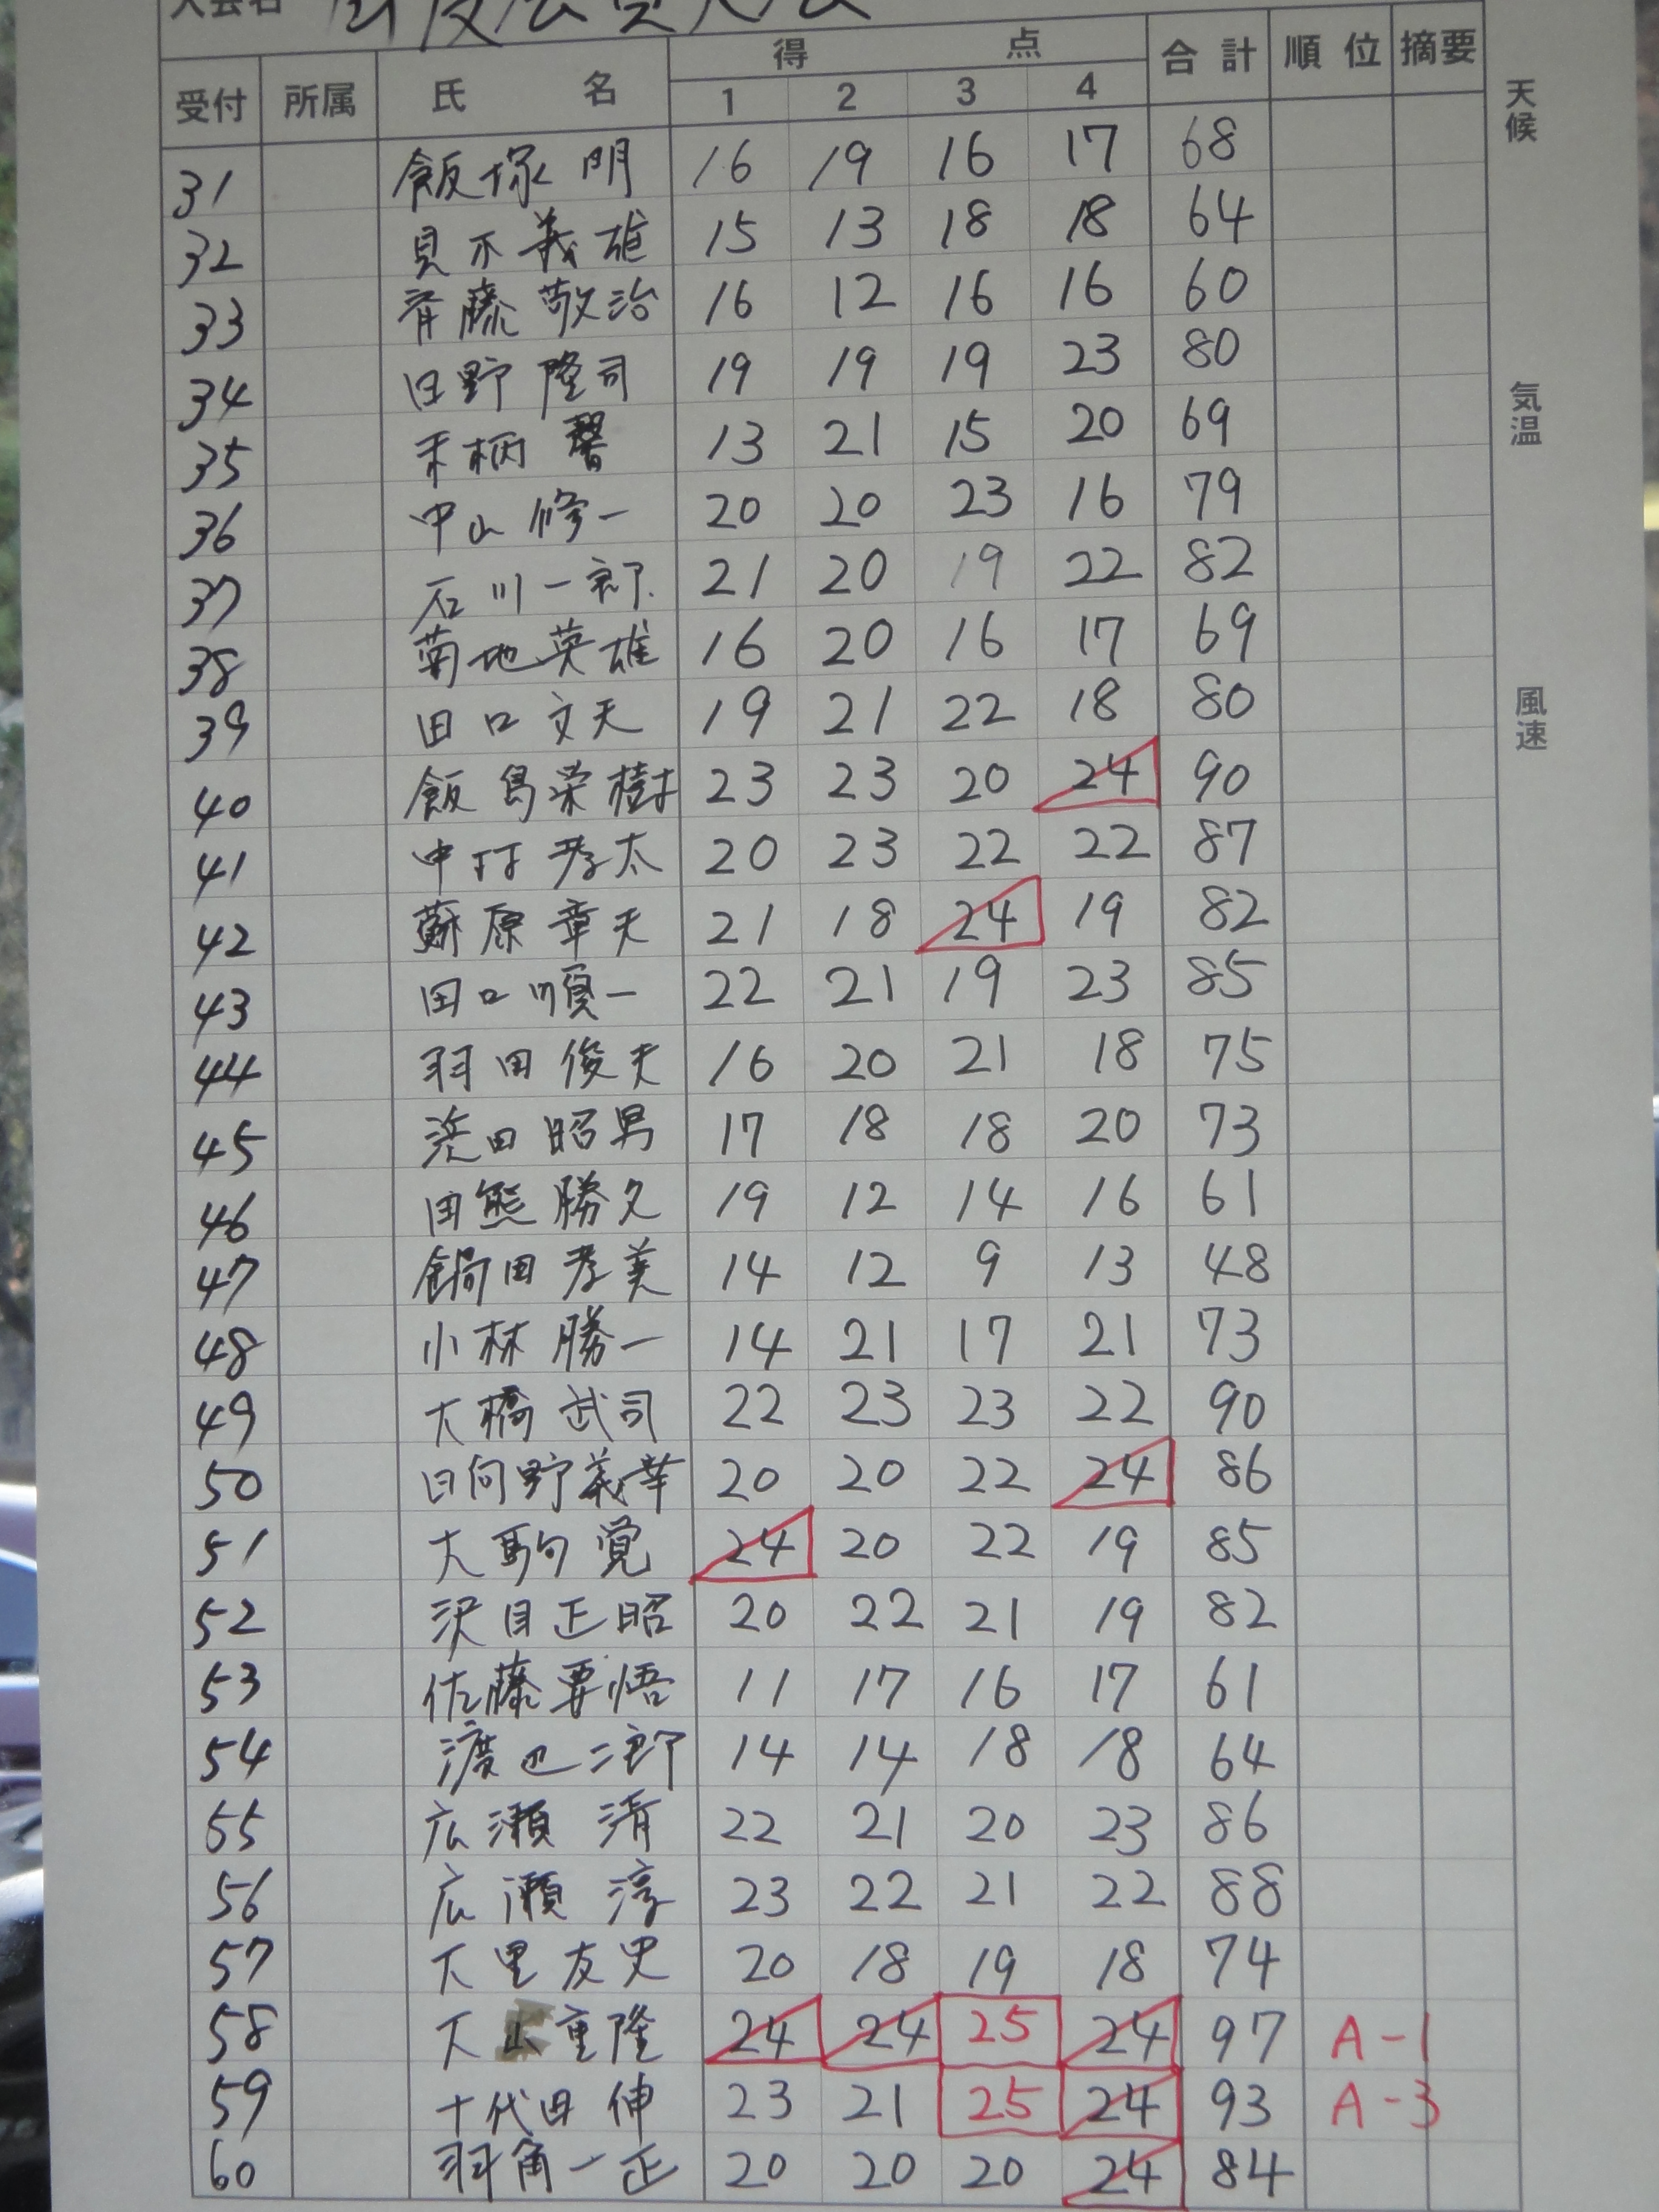 大会名
得 点 合計 順位 摘要
受付 所属 氏 名 1 2 3 4
天候
気温
風速
31 飯塚 明 16 19 16 17 68
32 義雄 15 13 18 18 64
33 斉藤 敬治 16 12 16 16 60
34 日野 隆司 19 19 19 23 80
35 13 21 15 20 69
36 中山 修一 20 20 23 16 79
37 石川一郎 21 20 19 22 82
38 菊地英雄 16 20 16 17 69
39 田口文夫 19 21 22 18 80
40 飯島栄樹 23 23 20 24 90
41 中村孝太 20 23 22 22 87
42 蘇原章夫 21 18 24 19 82
43 田口順一 22 21 19 23 85
44 羽田俊夫 16 20 21 18 75
45 浜田昭男 17 18 18 20 73
46 田熊勝久 19 12 14 16 61
47 鍋田孝美 14 12 9 13 48
48 小林勝一 14 21 17 21 73
49 大橋武司 22 23 23 22 90
50 日向野義幸 20 20 22 24 86
51 大駒 覚 24 20 22 19 85
52 沢目正昭 20 22 21 19 82
53 佐藤要悟 11 17 16 17 61
54 渡辺二郎 14 14 18 18 64
55 広瀬 清 22 21 20 23 86
56 広瀬 淳 23 22 21 22 88
57 大里友史 20 18 19 18 74
58 大山重隆 24 24 25 24 97 A-1
59 十代田 伸 23 21 25 24 93 A-3
60 羽角一正 20 20 20 24 84